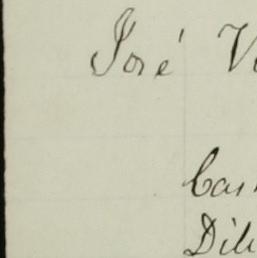 José V
Cas
Dili